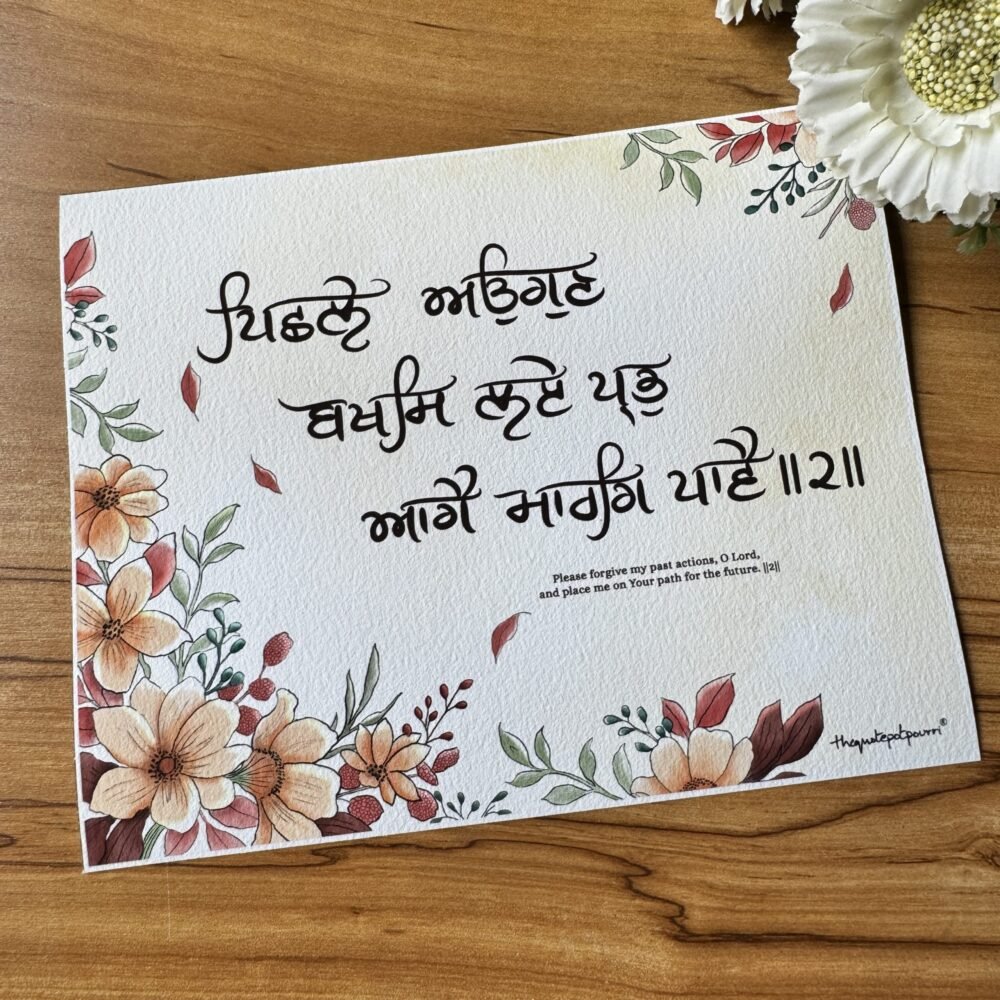 ਪਿਛਲੇ ਅਉਗੁਣ
ਬਖਸਿ ਲਏ ਪ੍ਰਭੁ
ਆਗੈ ਮਾਰਗਿ ਪਾਵੈ ॥੨॥
Please forgive my past actions, O Lord,
and place me on Your path for the future. ||2||
thequotepotpourri®